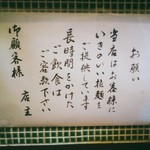 お願い
当店はお客様に
いきのいい拉麺を
ご提供しています
長時間をかけた
ご飲食は
ご容赦下さい
店主
御顧客様